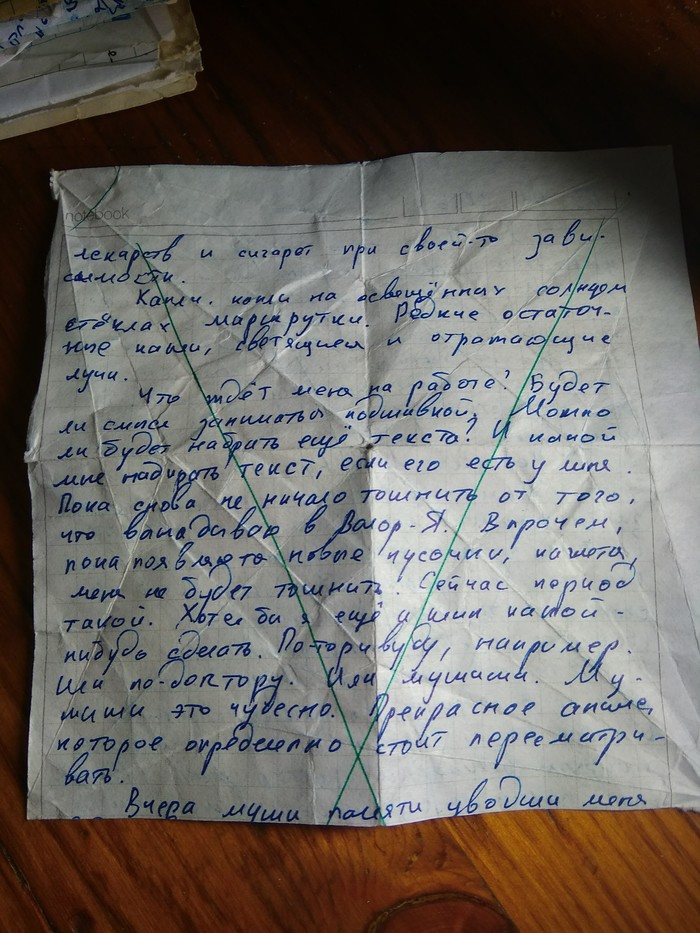 notebook
лекарств и сигарет при своей-то зави-
симости.
Капли. капли на освещённых солнцем
стёклах маршрутки. Редкие остаточ-
ные капли, светящиеся и отражающие
лучи.
Что ждёт меня на работе? Будет
ли смысл заниматься подшивкой. Можно
ли будет набрать ещё текста? И какой
мне набирать текст, если его есть у меня.
Пока снова не начало тошнить от того,
что выкладываю в
Впрочем,
пока появляются новые кусочки, кажется,
меня не будет тошнить. Сейчас период
такой. Хотел бы я ещё клип какой-
нибудь сделать. По например.
Или по-доктору. Или мушиши. Му-
шиши это чудесно. Прекрасное аниме,
которое определенно стоит пересматри-
вать.
Вчера муши памяти уводили меня